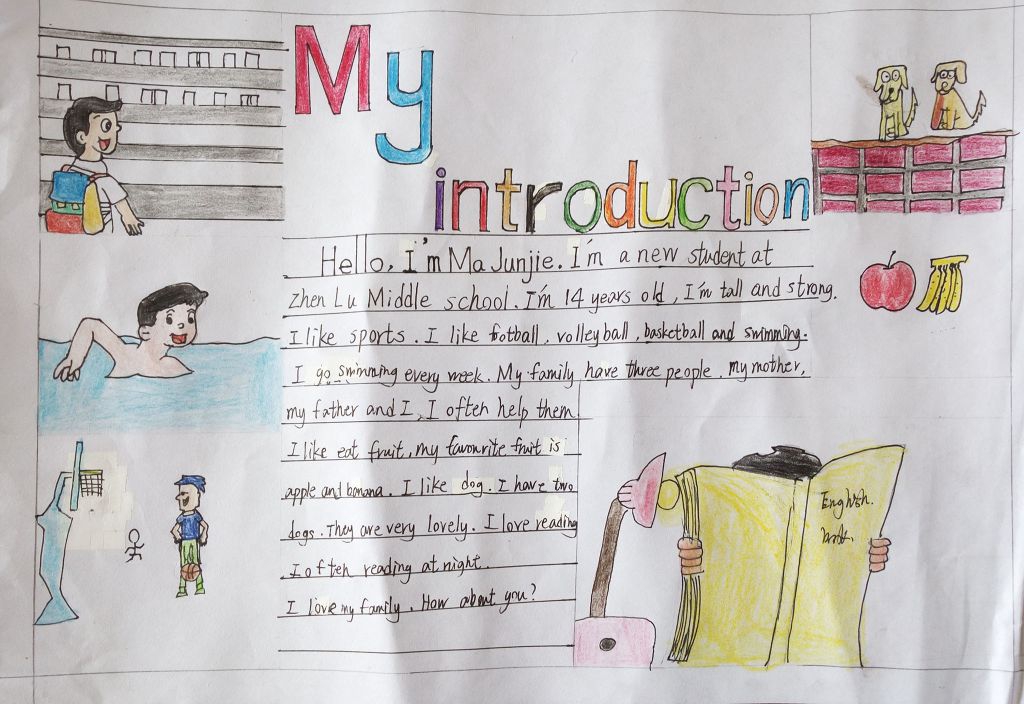 My
introduction
Hello, I'm Ma Junjie. I'm a new student at
Zhen Lu Middle school. I'm 14 years old, I'm tall and strong.
I like sports. I like football, volleyball, basketball and swimming.
I go swimming every week. My family have three people. my mother,
my father and I, I often help them.
I like eat fruit, my favourite fruit is
apple and banana. I like dog. I have two
dogs. They are very lovely. I love reading
I often reading at night.
I love my family. How about you?
English.